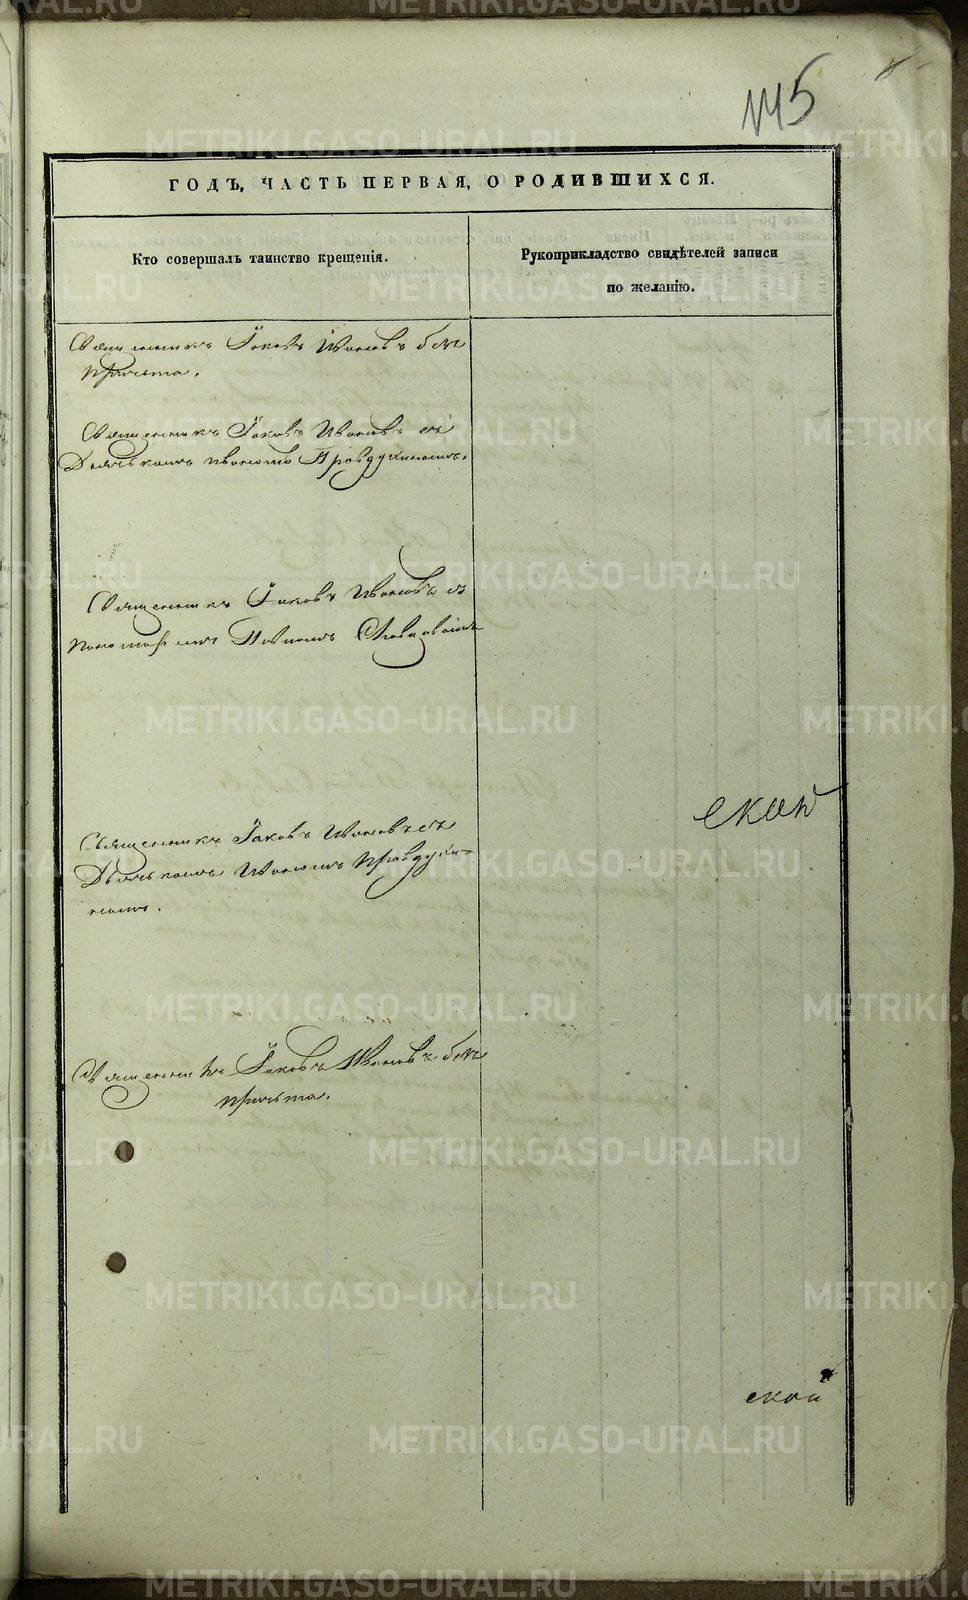 145
ГОДЪ, ЧАСТЬ ПЕРВАЯ, О РОДИВШИХСЯ.
Кто совершалъ таинство крещенія.
Рукоприкладство свидѣтелей записи
по желанію.
Священникъ Іаковъ Ивановъ безъ
причьта.
Священникъ Іаковъ Ивановъ съ
Дьячькомъ Иваномъ Правдухинымъ.
Священникъ Іаковъ Ивановъ съ
пономаремъ Павломъ
Священникъ Іаковъ Ивановъ съ
Дьячькомъ Иваномъ Правдухи-
нымъ.
ской
Священникъ Іаковъ Ивановъ безъ
причьта.
ской
METRIKI.GASO-URAL.RU